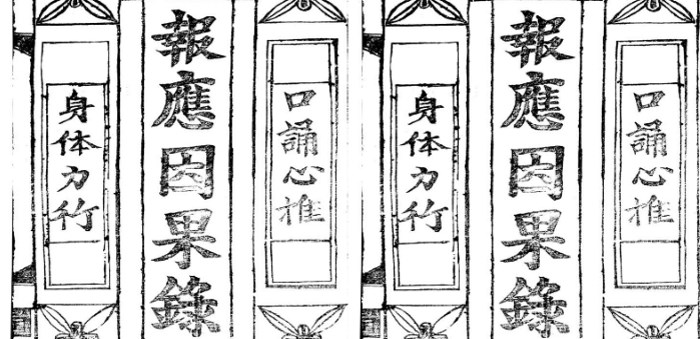 口誦心推
報應因果錄
身体力行
口誦心推
報應因果錄
身体力行